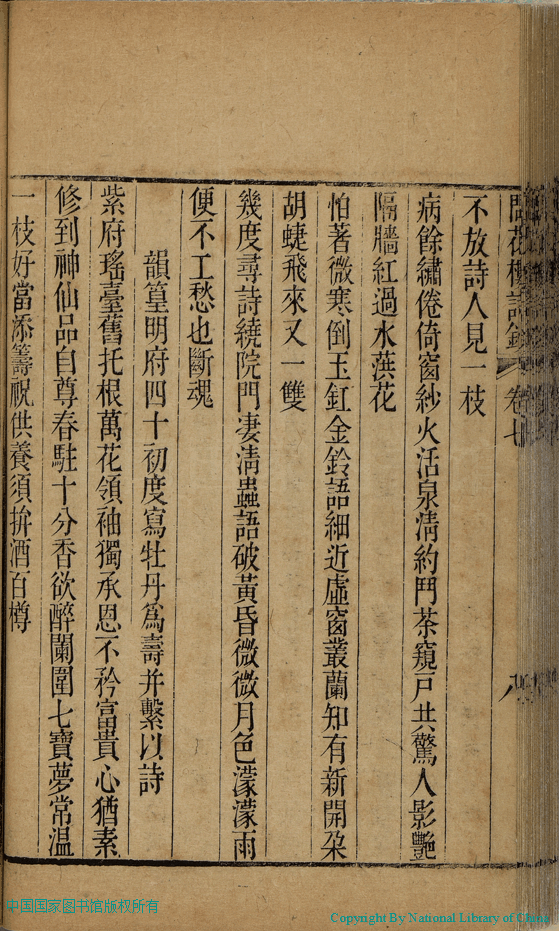 問花樓詩鈔 卷七 八
不放詩人見一枝
病餘繡倦倚窗紗火活泉清約鬥茶窺戶共驚人影豔
隔牆紅過水葓花
怕著微寒倒玉缸金鈴語細近虛窗叢蘭知有新開朶
胡蜨飛來又一雙
幾度尋詩繞院門淒清蟲語破黃昏微微月色濛濛雨
便不工愁也斷魂
韻篁明府四十初度寫牡丹爲壽并繫以詩
紫府瑤臺舊托根萬花領袖獨承恩不矜富貴心猶素
修到神仙品自尊春駐十分香欲醉闌圍七寶夢常溫
一枝好當添籌祝供養須拚酒百樽
中国国家图书馆版权所有
Copyright By National Library of China